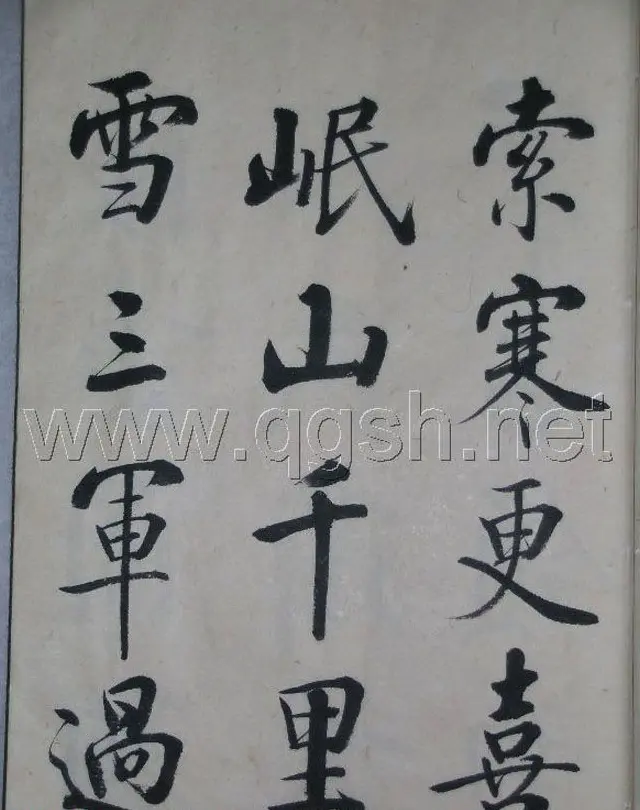 索寒更喜
岷山千里
雪三軍過
www.qgsh.net